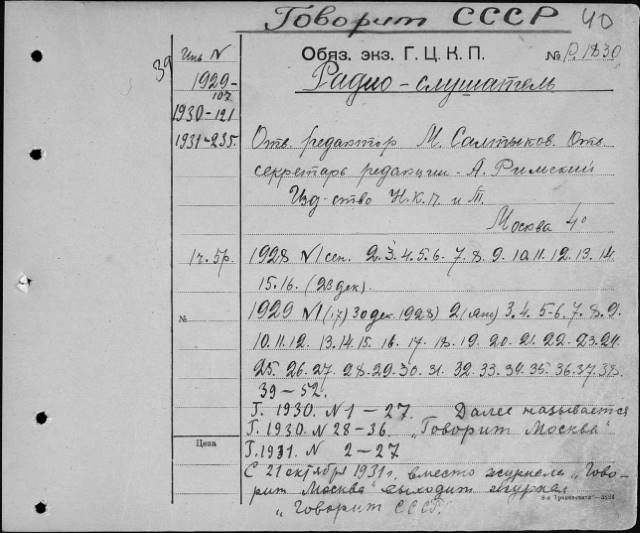 Говорит СССР 40
39
Инв N
Обяз. экз. Г. Ц. К. П. № Р.1830
1929-
107
Радио-слушатель
1930-121
1931-235.
Отв. редактор М. Салтыков. Отв.
секретарь редакции - А. Римский
Изд-ство Н.К.П. и Т.
Москва 4°
1928 N1 сен. 2.3.4.5.6.7.8.9.10.11.12.13.14
15.16. (23 дек).
№
1929 N1 (17) 30 дек. 1928) 2 3.4.5-6.7.8.9.
10.11.12. 13.14.15. 16. 17. 18. 19. 20. 21. 22. 23.24
25. 26. 27. 28. 29. 30. 31. 32. 33. 34. 35. 36. 37. 38.
39-52.
Г. 1930. N 1-27. Далее называется
Г. 1930. N 28-36. „Говорит Москва"
Цена
Г. 1931. N 2-27
С 21 октября 1931 г. вместо журнала „Гово-
рит Москва" выходит журнал
„Говорит СССР."